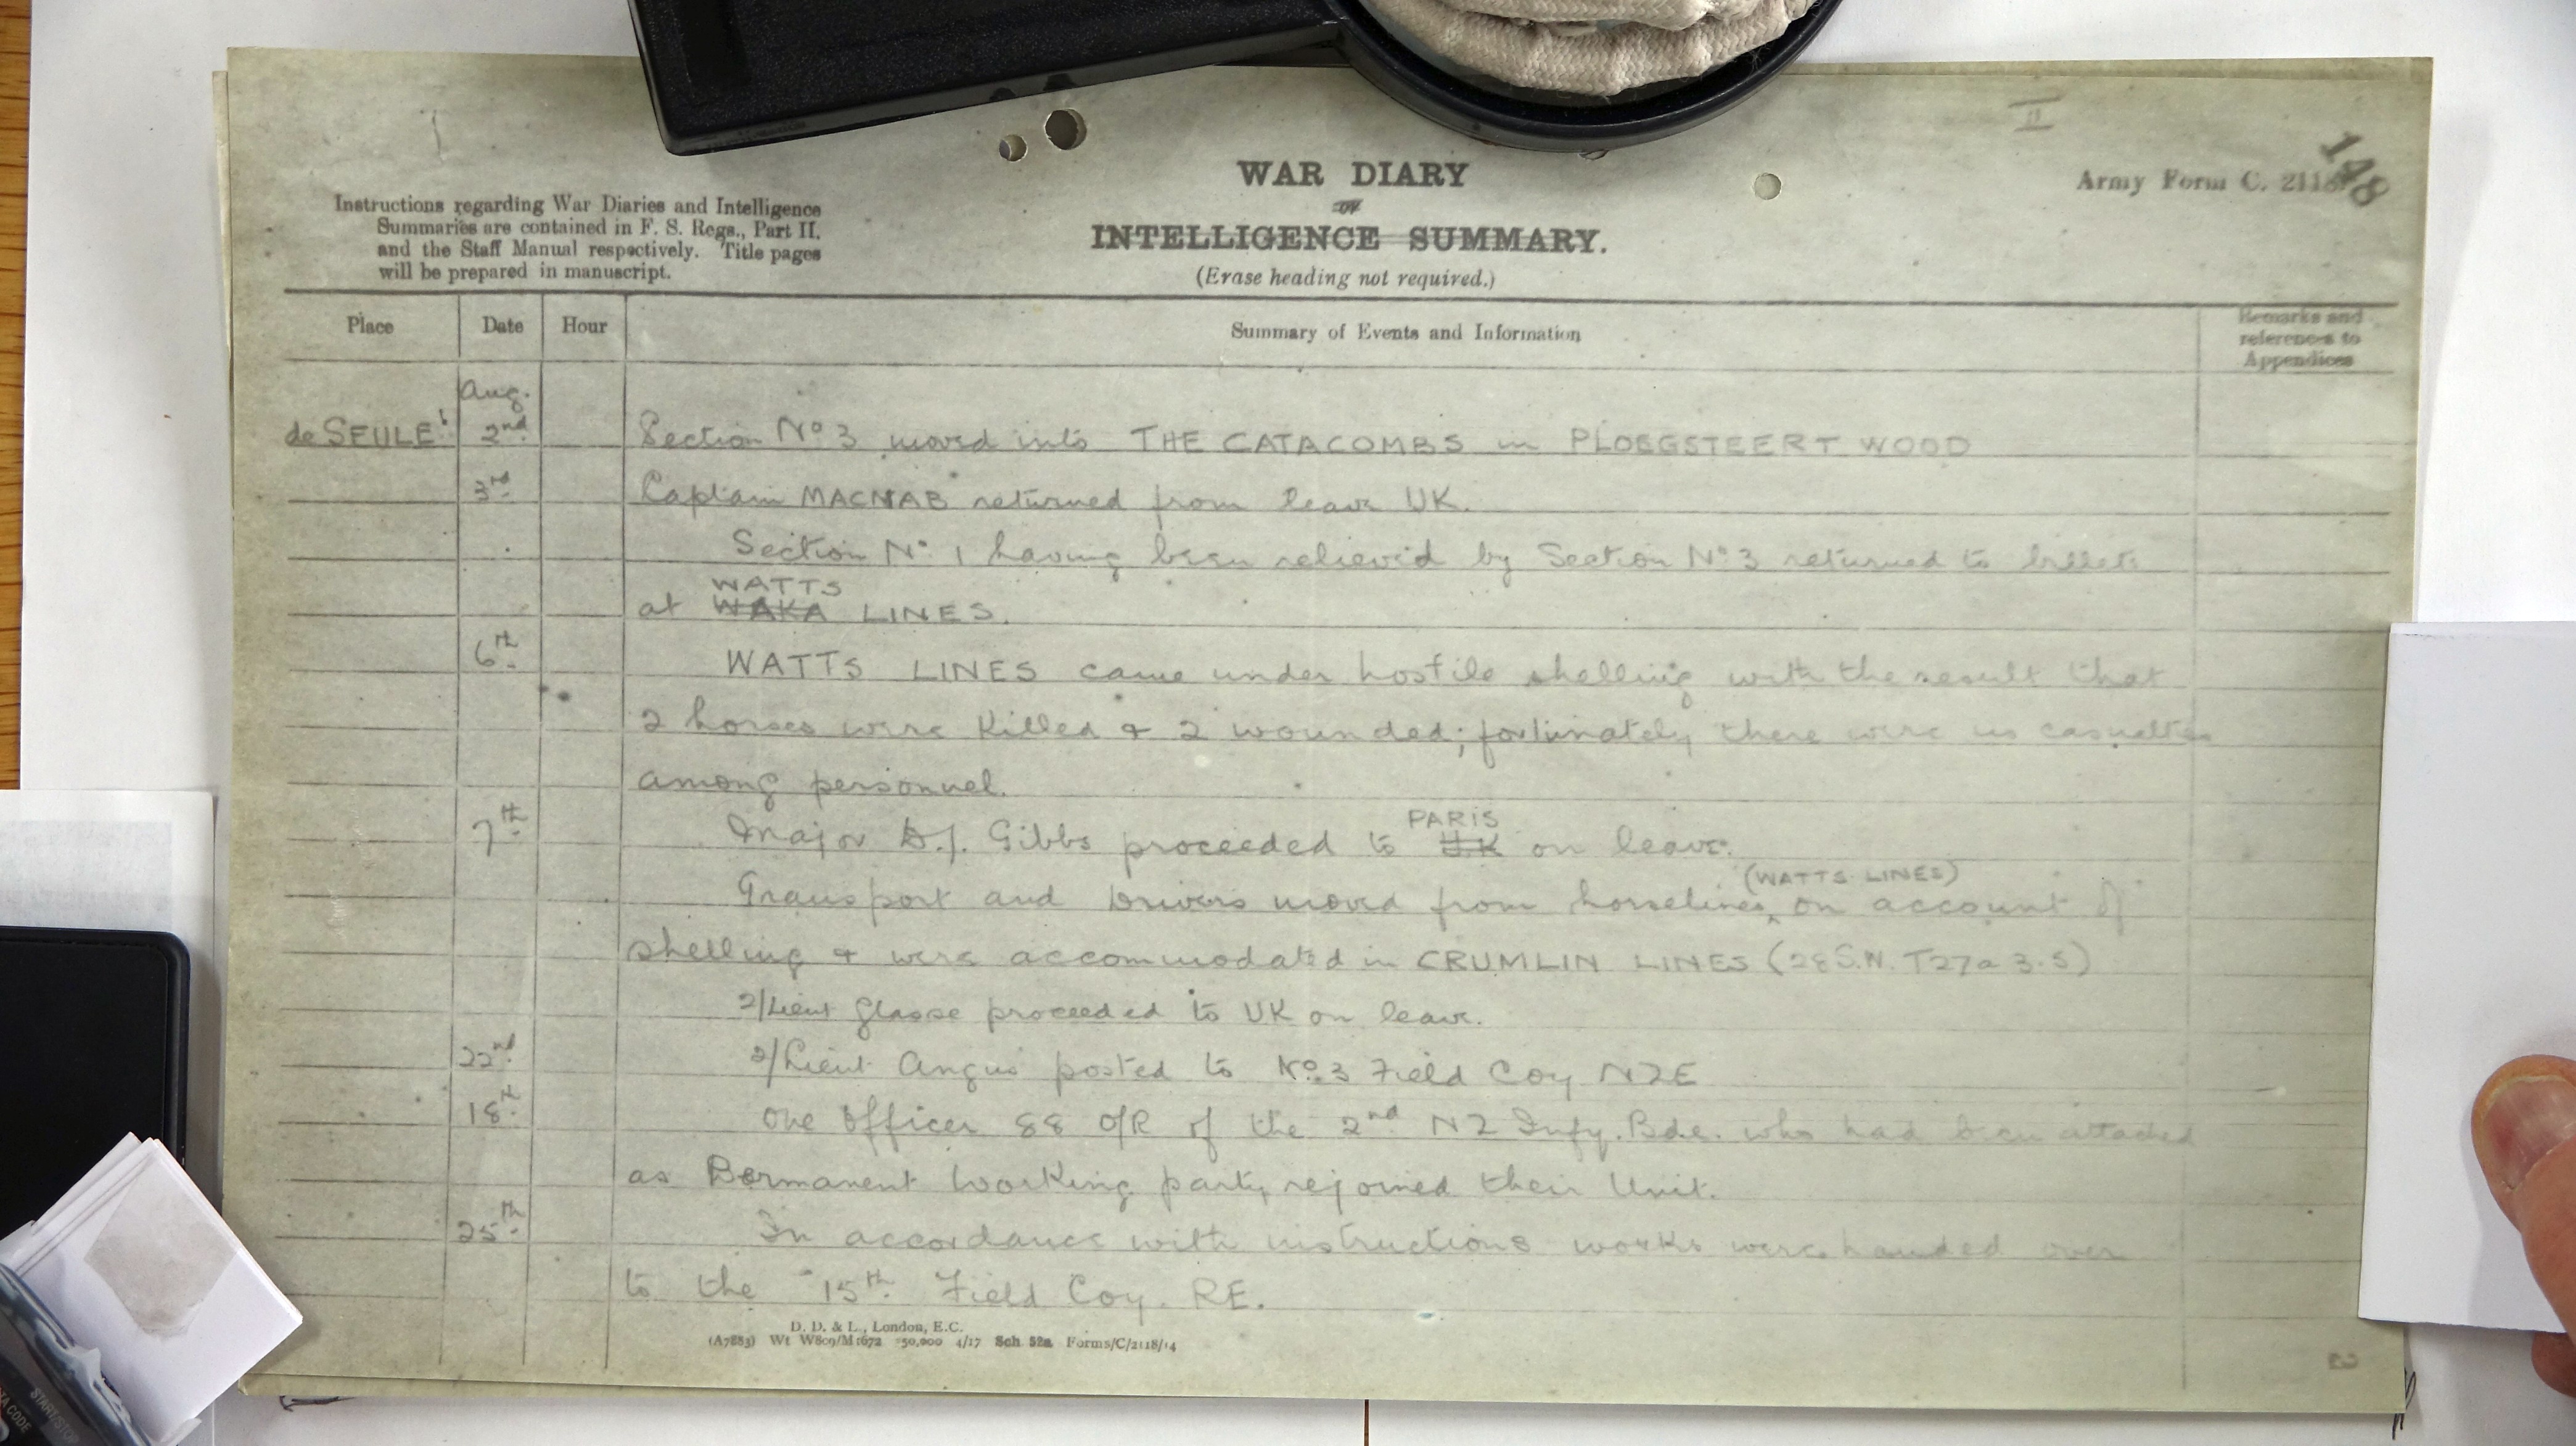 II
148
Army Form C. 2118.
WAR DIARY
or
INTELLIGENCE SUMMARY.
(Erase heading not required.)
Instructions regarding War Diaries and Intelligence
Summaries are contained in F. S. Regs., Part II.
and the Staff Manual respectively. Title pages
will be prepared in manuscript.
Place Date Hour Summary of Events and Information Remarks and references to Appendices
Aug.
de SEULE 2nd Section No 3 moved into THE CATACOMBS in PLOEGSTEERT WOOD
3rd Captain MACNAB returned from leave UK.
Section No 1 having been relieved by Section No 3 returned to billets
WATTS
at WAKA LINES.
6th WATTS LINES came under hostile shelling with the result that
2 horses were Killed & 2 wounded; fortunately there were no casualties
among personnel.
PARIS
7th Major D.J. Gibbs proceeded to U.K on leave.
(WATTS LINES)
Transport and Drivers moved from horselines on account of
shelling & were accommodated in CRUMLIN LINES (28 S.W. T27a 3.5)
2/Lieut Glasse proceeded to UK on leave.
22nd 2/Lieut Angus posted to No.3 Field Coy NZE
18th One Officer 88 O/R of the 2nd NZ Infy. Bde. who had been attached
as Permanent Working party rejoined their Unit.
25th In accordance with instructions works were handed over
to the 15th Field Coy. RE.
D. D. & L., London, E.C.
(A7883) Wt W809/M1672 350,000 4/17 Sch 52a Forms/C/2118/14
START/STOP
A CODE